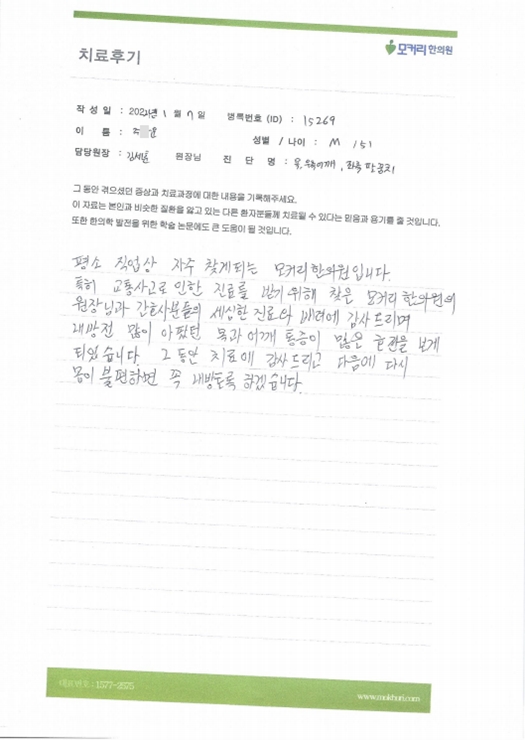 모커리한의원
치료후기
작성일 : 202 년 1 월 7 일 병록번호 (ID) : 15269
이 름 : 성별 / 나이 : M / 51
담당원장 : 원장님 진 단 명 : 목, 우측어깨, 좌측 팔꿈치
그 동안 겪으셨던 증상과 치료과정에 대한 내용을 기록해주세요.
이 자료는 본인과 비슷한 질환을 앓고 있는 다른 환자분들께 치료될 수 있다는 믿음과 용기를 줄 것입니다.
또한 한의학 발전을 위한 학술 논문에도 큰 도움이 될 것입니다.
평소 직업상 자주 찾게되는 모커리한의원입니다.
특히 교통사고로 인한 진료를 받기위해 찾은 모커리한의원의
원장님과 간호사분들의 세심한 진료와 배려에 감사드리며
내방전 많이 아팠던 목과 어깨 통증이 많은 효과를 보게
되었습니다. 그 동안 치료에 감사드리고 다음에 다시
몸이 불편하면 꼭 내방토록 하겠습니다.
대표번호 : 1577-2675
www.mokhuri.com